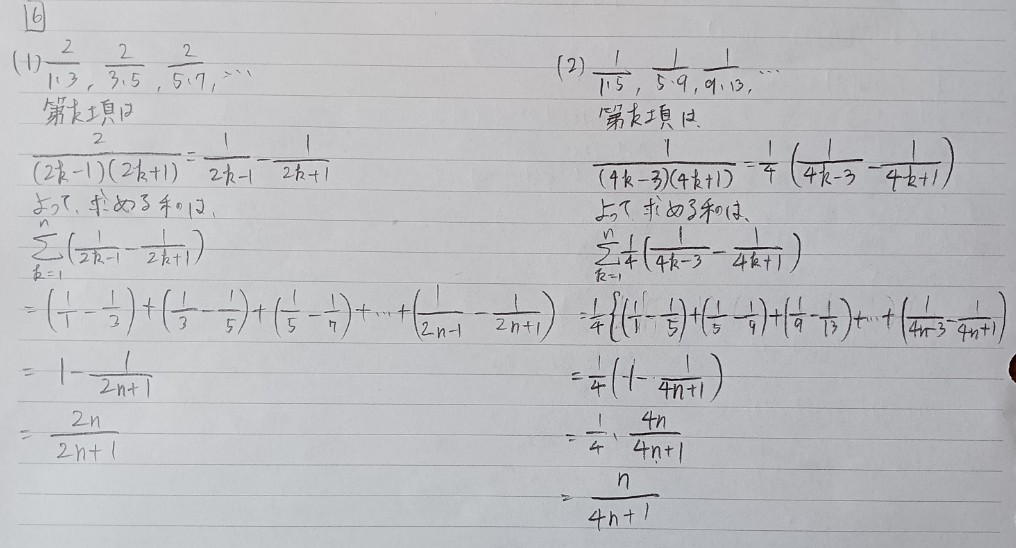 16
(1) 2/(1・3), 2/(3・5), 2/(5・7), …
第k項は
2/((2k-1)(2k+1)) = 1/(2k-1) - 1/(2k+1)
よって、求める和は、
Σ[k=1→n] (1/(2k-1) - 1/(2k+1))
= (1/1 - 1/3) + (1/3 - 1/5) + (1/5 - 1/7) + … + (1/(2n-1) - 1/(2n+1))
= 1 - 1/(2n+1)
= 2n/(2n+1)
(2) 1/(1・5), 1/(5・9), 1/(9・13), …
第k項は、
1/((4k-3)(4k+1)) = 1/4 (1/(4k-3) - 1/(4k+1))
よって、求める和は、
Σ[k=1→n] 1/4 (1/(4k-3) - 1/(4k+1))
= 1/4 {(1/1 - 1/5) + (1/5 - 1/9) + (1/9 - 1/13) + … + (1/(4n-3) - 1/(4n+1))
= 1/4 (1 - 1/(4n+1))
= 1/4 ・ 4n/(4n+1)
= n/(4n+1)